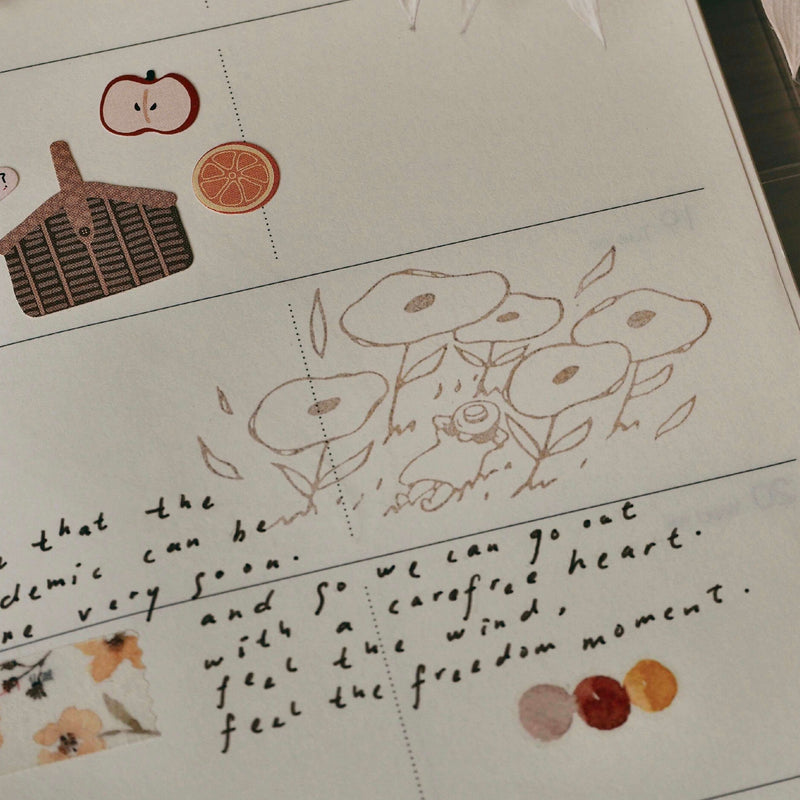 that the
demic can be
very soon.
and so we can go out
with a carefree heart.
feel the wind,
feel the freedom moment.